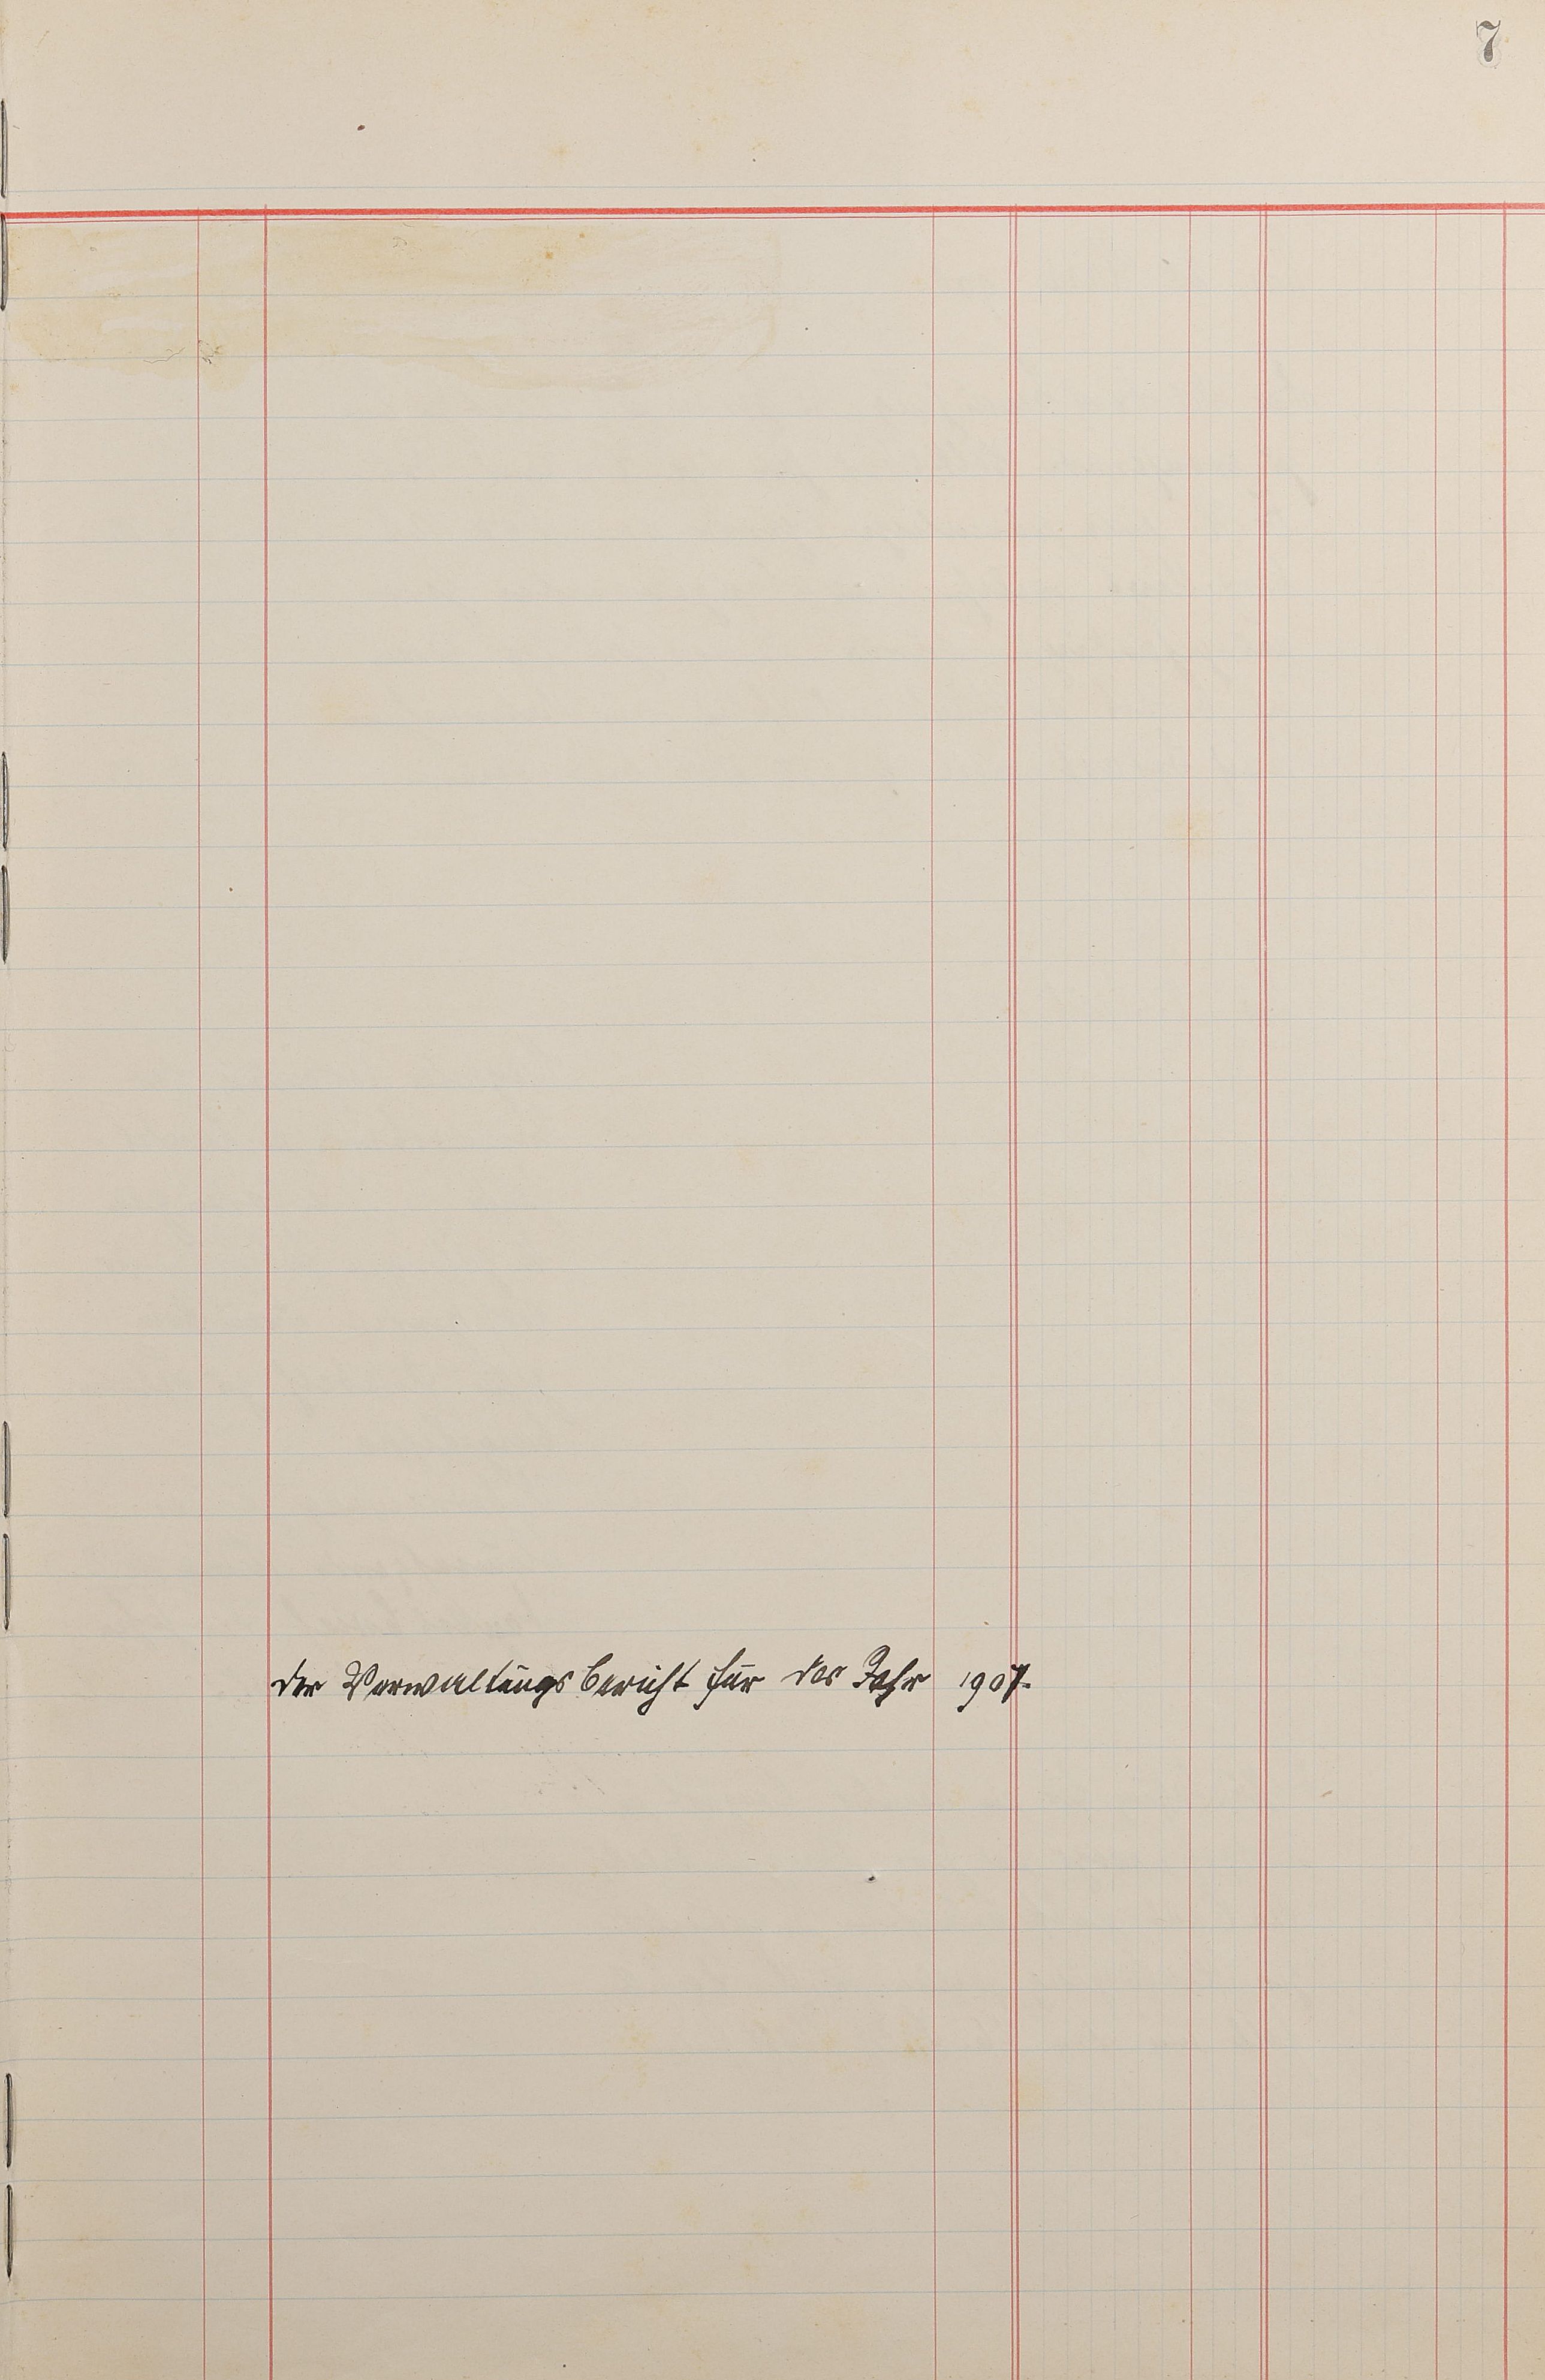 7
der Verwaltungsbericht für das Jahr 1907.